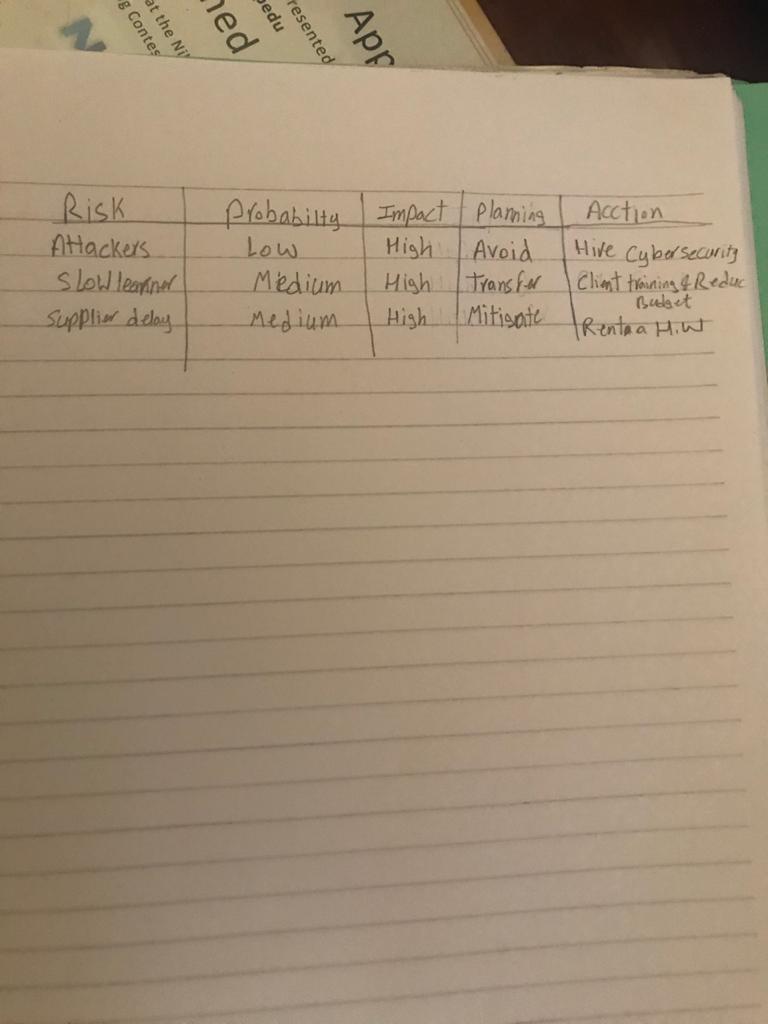 App
resented
pedu
ned
at the Ni
g Contes
N
Risk Probabilty Impact Planning Acction
Attackers Low High Avoid Hire Cybersecurity
Slow learner Medium High Transfer Client training & Reduc
Budget
Supplier delay Medium High Mitigate Rent a H.W